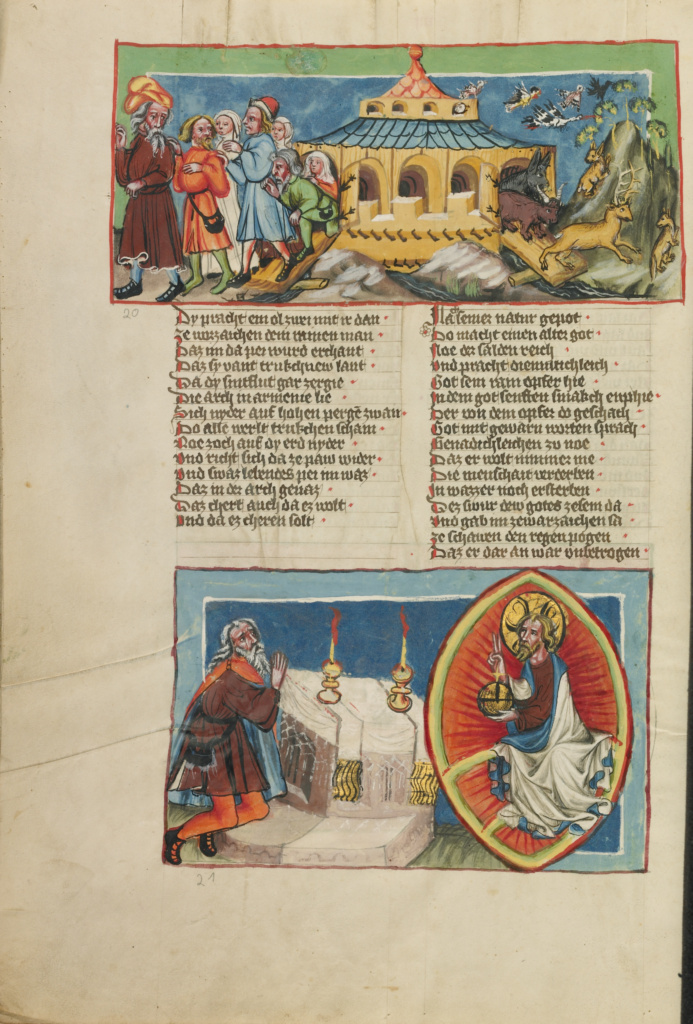 20
Dy pracht ein ol zwei mit ir dan
ze worzaichen dem rainen man
Daz im da pei wurd erchant
Daz sy vant trukchnew lant
Da dy sintflut gar zergie
Die arch in armenie lie
Sich nyder auf hohen pergen zwan
Do alle werlt trukchen scham
Noe zoch auf dy erd nyder
Vnd richt sich da ze paw wider
Vnd swaz lebendes pei im waz
Daz in der arch genaz
Daz chert auch da ez wolt
Vnd da ez cheren solt
Nach seiner natur gepot
Do macht einen alter got
Noe der salden reich
Vnd pracht diemutichleich
Got sein rain opfer hie
In dem got senften smakch enphie
Der von dem opfer do geschach
Got mit gewarn worten sprach
Genadichleichen zu noe
Daz er wolt nimmer me
Die menschait verderben
In wazzer noch ersterben
Dez swur dew gotes zesem da
Vnd gab im ze warzaichen sa
ze schawen den regen pogen
Daz er dar an war vnbetrogen
21